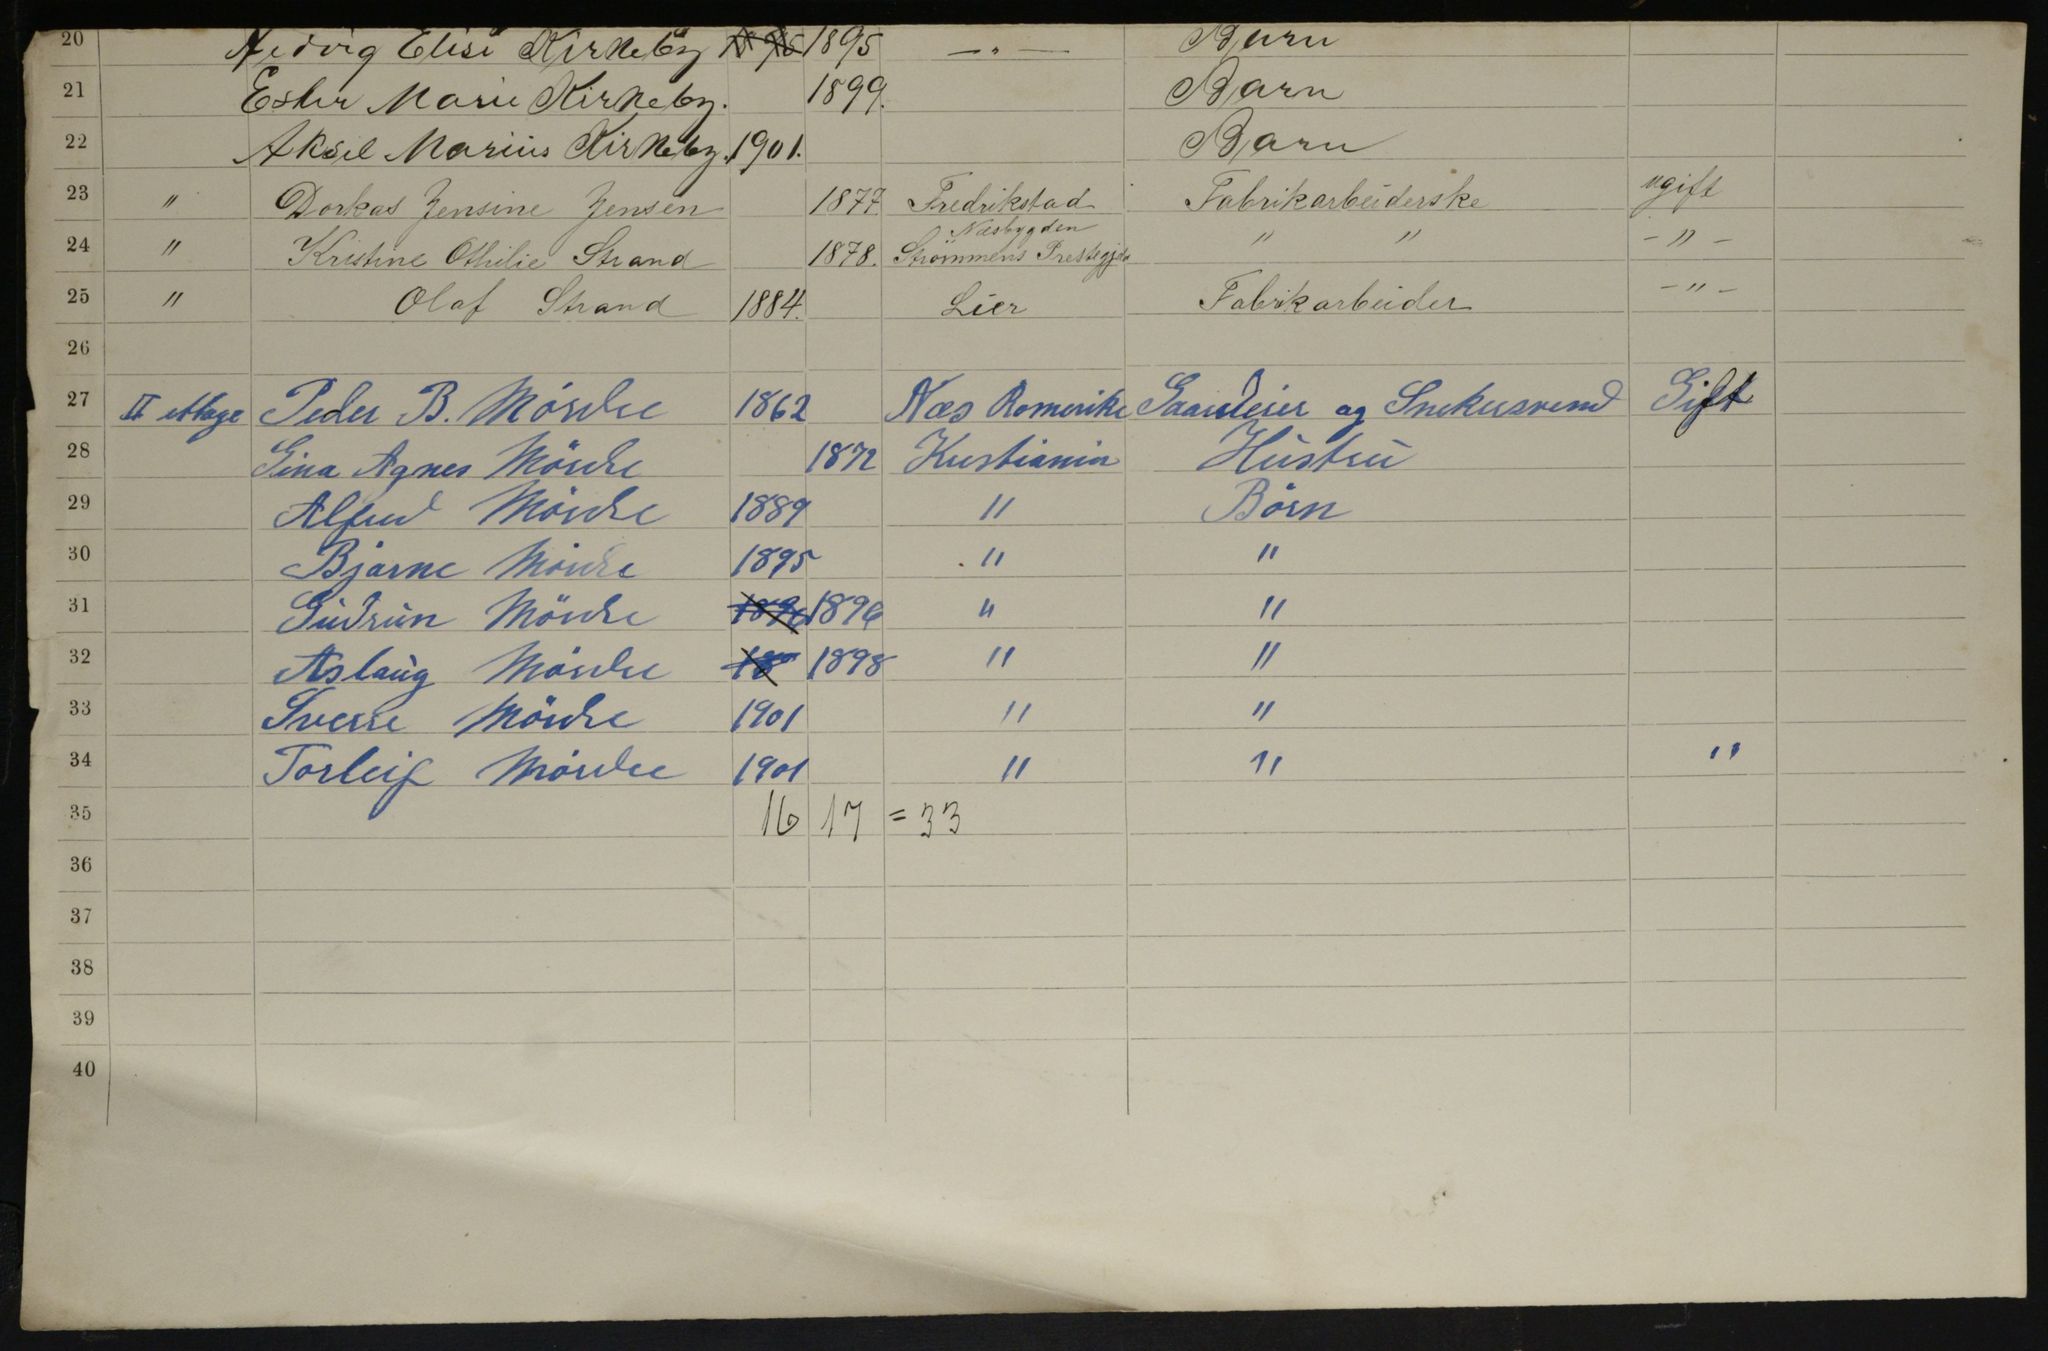 20 Hedvig Elise Kirkeby 1895 —"— Barn
21 Ester Marie Kirkeby. 1899. Barn
22 Aksel Marius Kirkeby. 1901. Barn
23 " Dorkas Jensine Jensen 1877. Fredrikstad Fabrikarbeiderske ugift
Næsbygden
24 " Kristine Othilie Strand 1878. Strömmens Prestegjeld " " -"-
25 " Olaf Strand 1884. Lier Fabrikarbeider -"-
26
27 II ettage Peder B. Mörche 1862 Næs Romerike Gaardeier og Snekersvend Gift
28 Gina Agnes Mörche 1872 Kristiania Hustru
29 Alfred Mörche 1889 " Börn
30 Bjarne Mörche 1895 " "
31 Gudrun Mörche 1896 1896 " "
32 Aslaug Mörche 18 1898 " "
33 Sverre Mörche 1901 " "
34 Torleif Mörche 1901 " " "
35 16 17 = 33
36
37
38
39
40